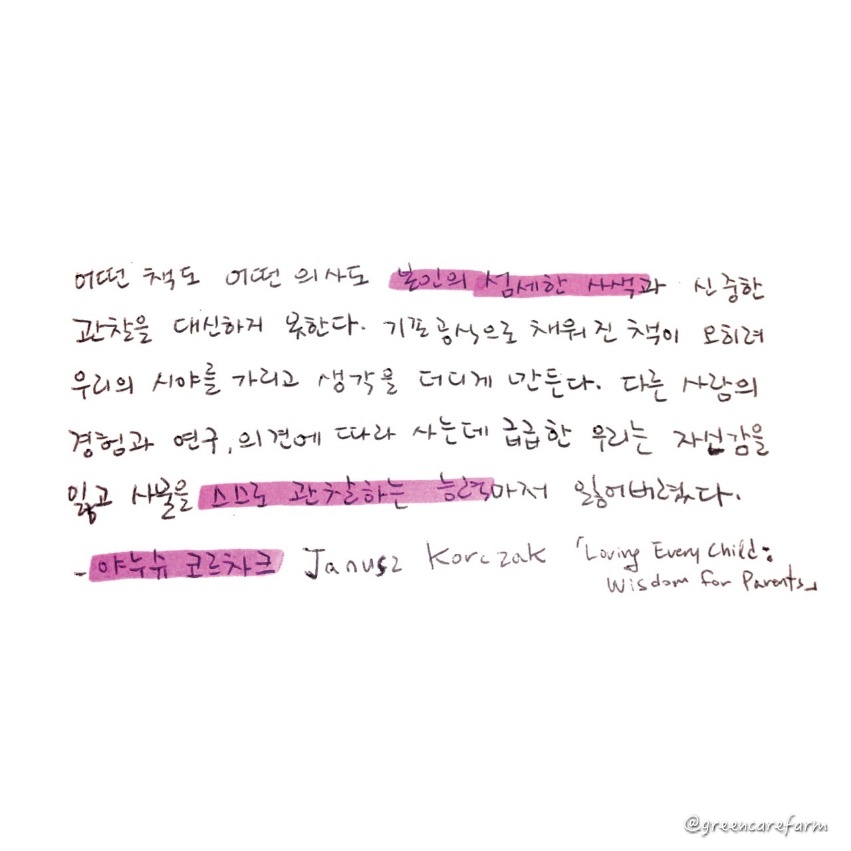 어떤 책도 어떤 의사도 본인의 섬세한 사색과 신중한
관찰을 대신하지 못한다. 기존공식으로 채워진 책이 오히려
우리의 시야를 가리고 생각을 더디게 만든다. 다른 사람의
경험과 연구, 의견에 따라 사는데 급급한 우리는 자신감을
잃고 사물을 스스로 관찰하는 능력마저 잃어버렸다.
- 야누슈 코르차크 Janusz Korczak 「Loving Every Child:
Wisdom for Parents」
@greencarefarm